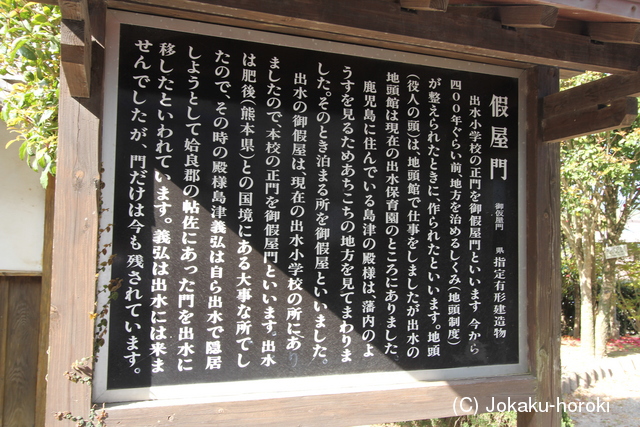 假屋門
御仮屋門
県指定有形建造物
出水小学校の正門を御假屋門といいます 今から
四〇〇年ぐらい前、地方を治めるしくみ(地頭制度)
が整えられたときに、作られたといいます。地頭
(役人の頭)は、地頭館で仕事をしましたが出水の
地頭館は現在の出水保育園のところにありました
鹿児島に住んでいる島津の殿様は、藩内のよ
うすを見るためあちこちの地方を見てまわりま
した。そのとき泊まる所を御假屋といいました。
出水の御假屋は、現在の出水小学校の所にあり
ましたので、本校の正門を御假屋門といいます。出水
は肥後(熊本県)との国境にある大事な所でし
たので、その時の殿様島津義弘は自ら出水で隠居
しようとして姶良郡の帖佐にあった門を出水に
移したといわれています。義弘は出水には来ま
せんでしたが、門だけは今も残されています。
(C) Jokaku-horoki